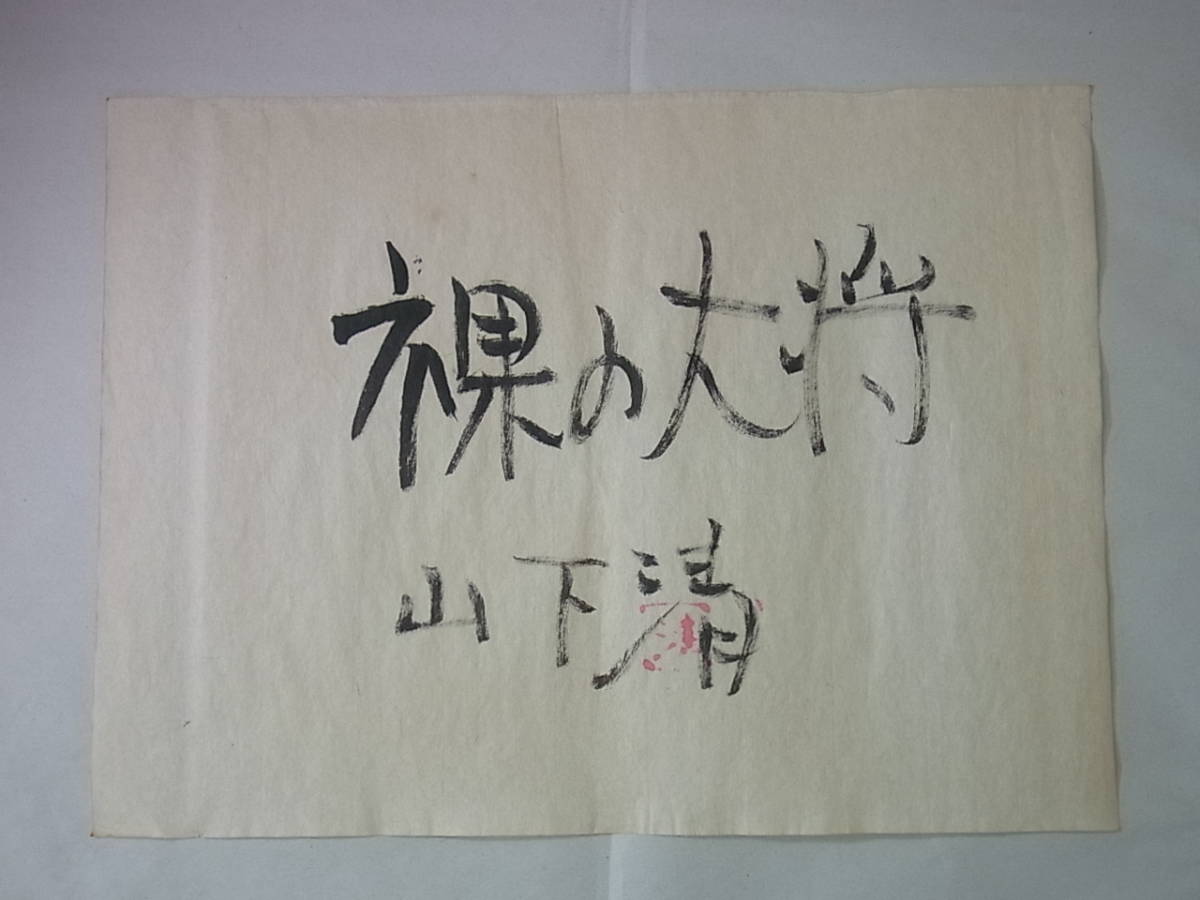 裸の大将
山下清